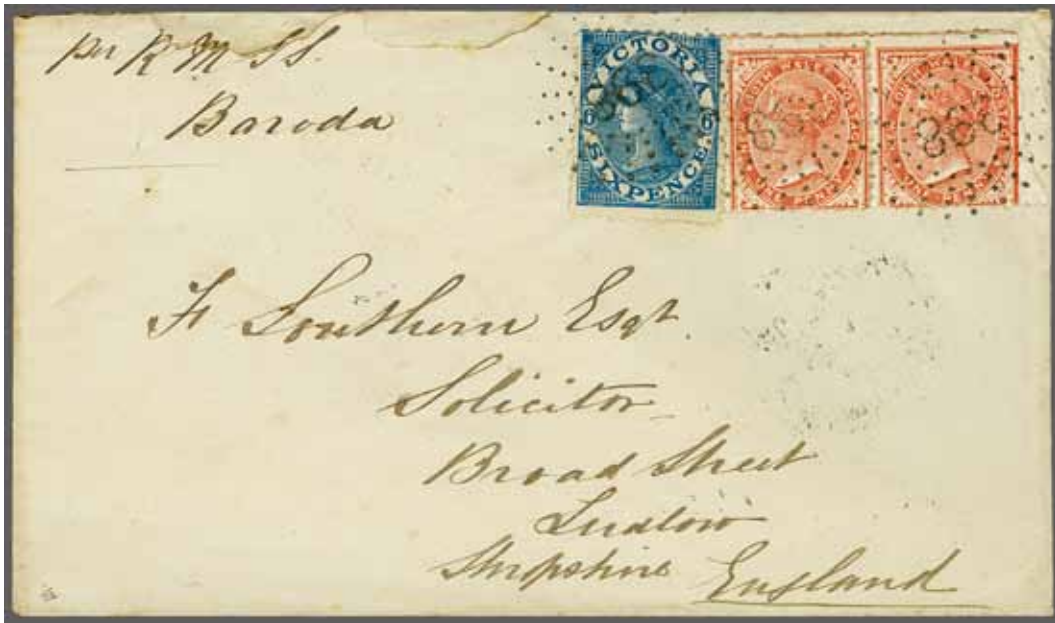 per R M SS.
Baroda
VICTORIA
6 6
SIXPENCE
F Southern Esqr
Solicitor
Broad Street
Ludlow
Shropshire England